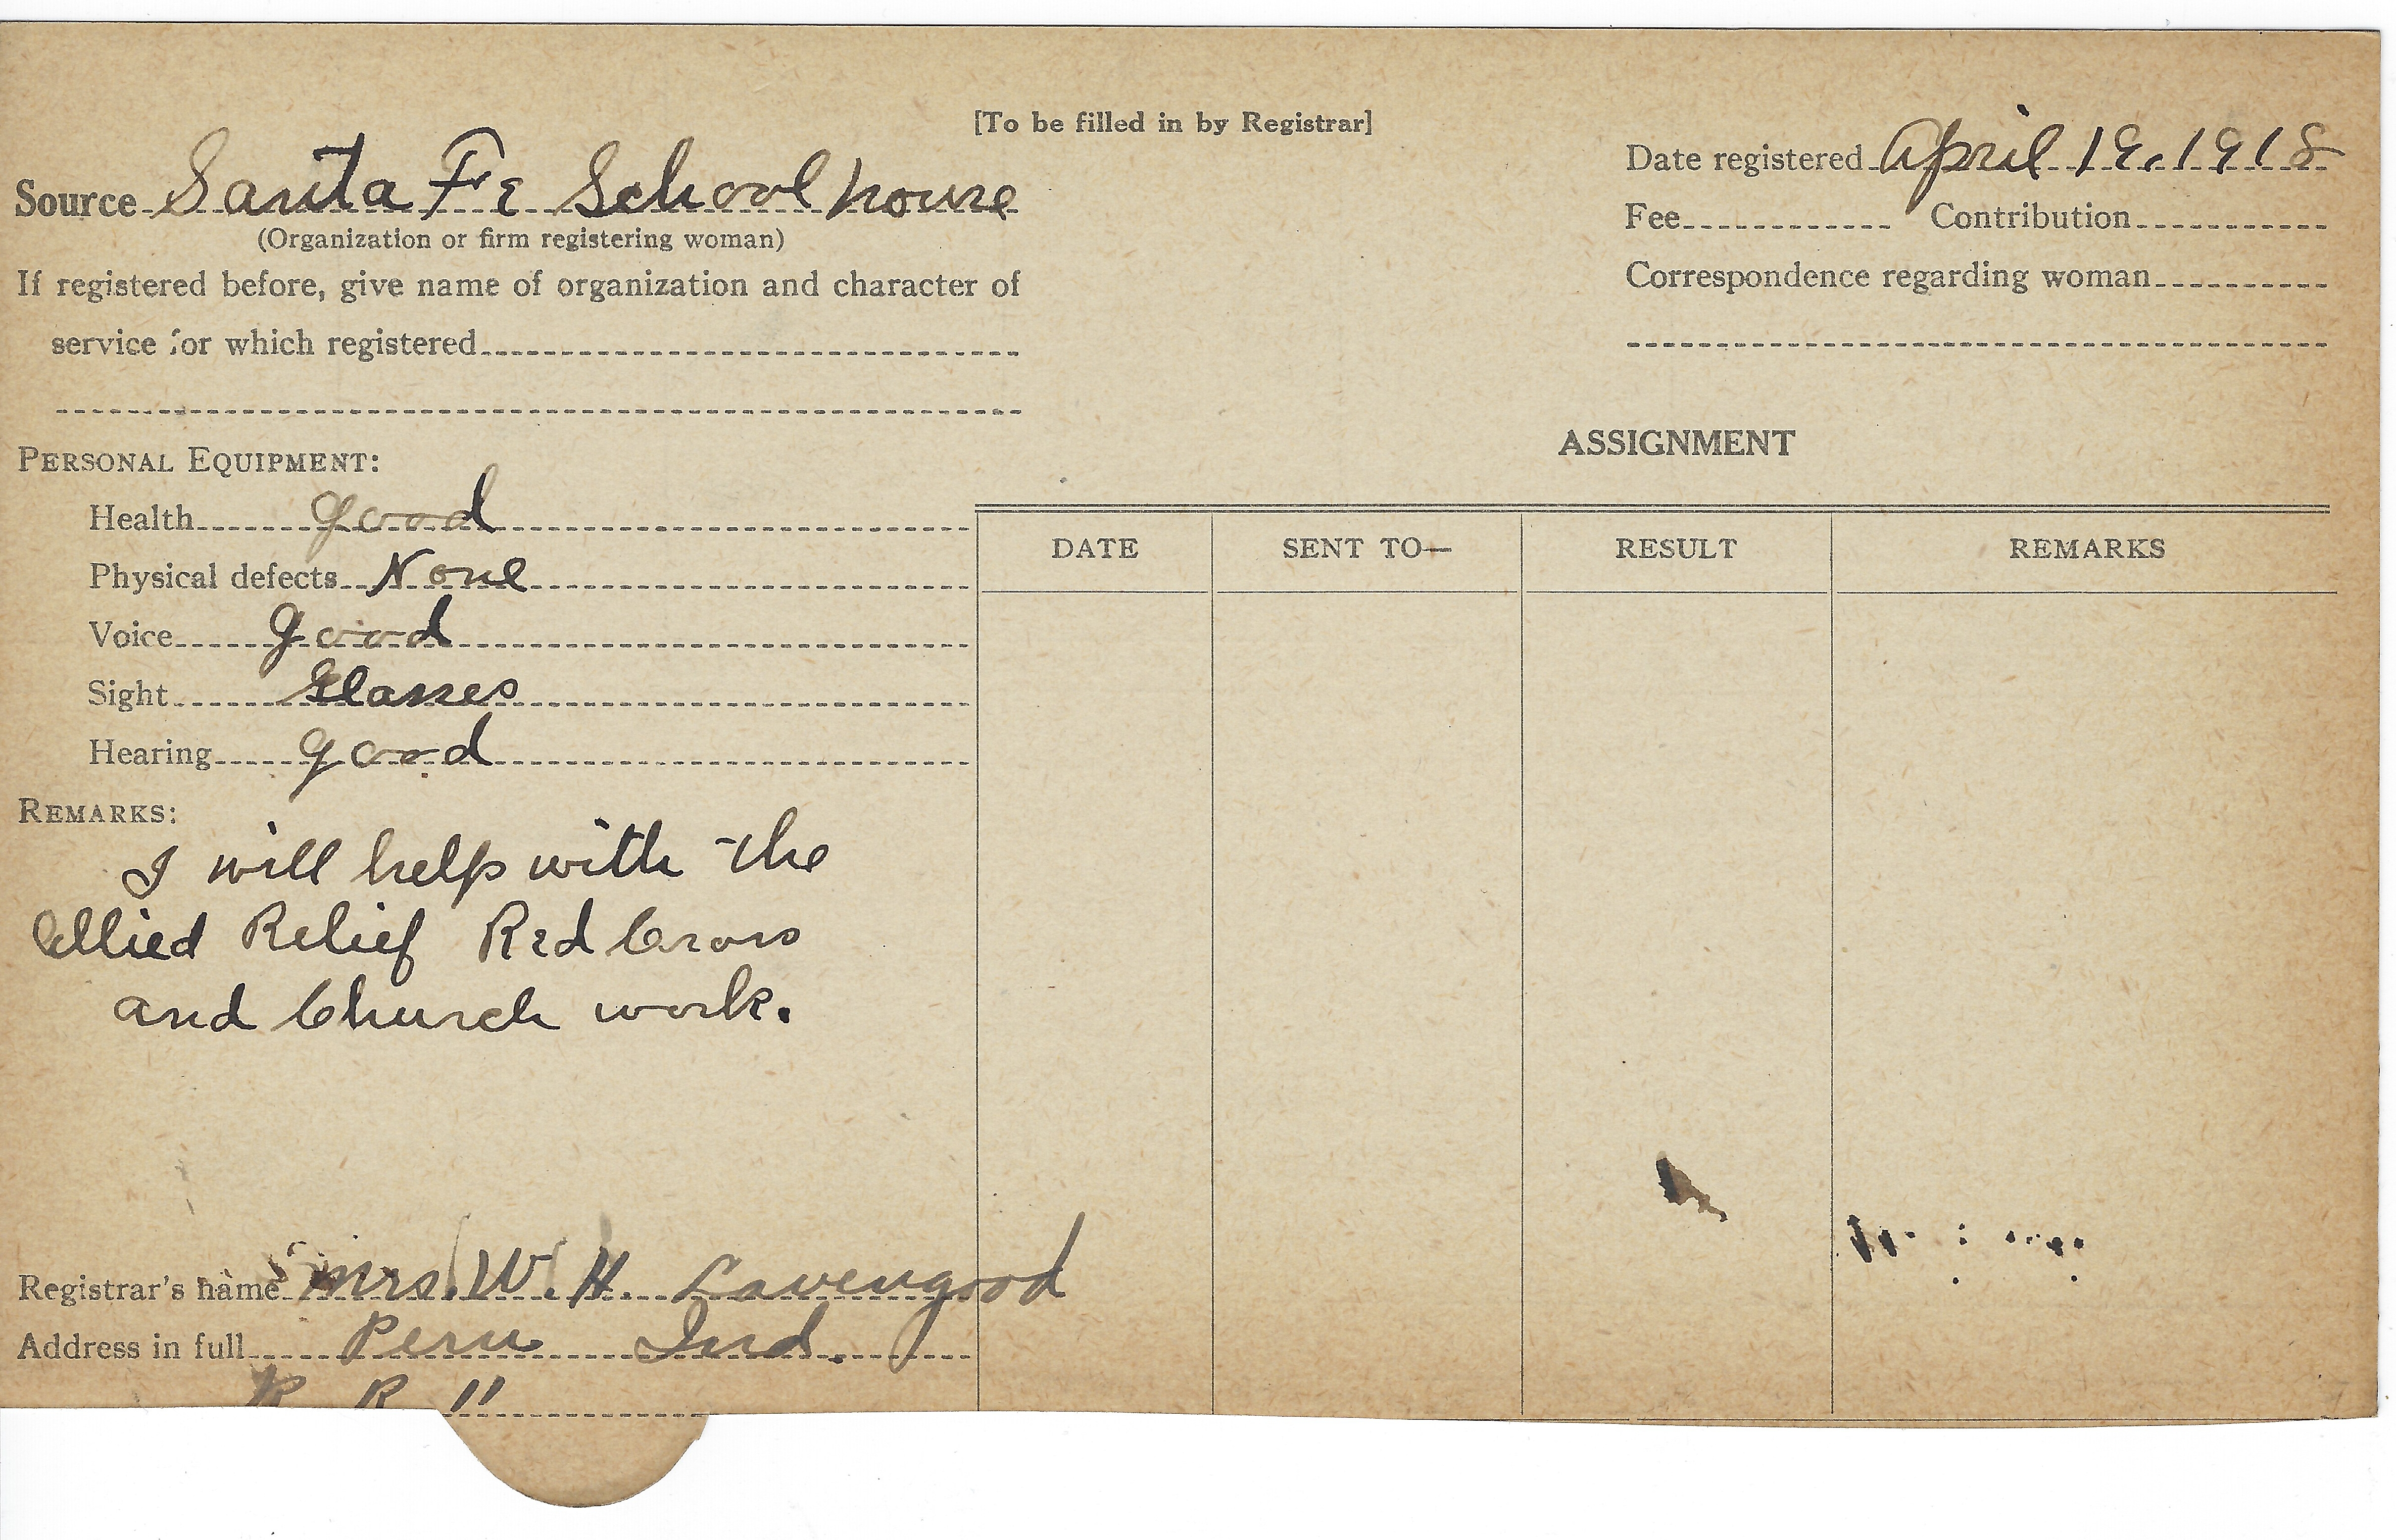 [To be filled in by Registrar]
Source Santa Fe School house
(Organization or firm registering woman)
If registered before, give name of organization and character of
service for which registered
Date registered April 19, 1918
Fee Contribution
Correspondence regarding woman
PERSONAL EQUIPMENT:
Health good
Physical defects None
Voice good
Sight Glasses
Hearing good
REMARKS:
I will help with the
Allied Relief Red Cross
and Church work.
Registrar's name Mrs. W. H. Lavengood
Address in full Peru Ind.
R R 11
ASSIGNMENT
DATE SENT TO— RESULT REMARKS